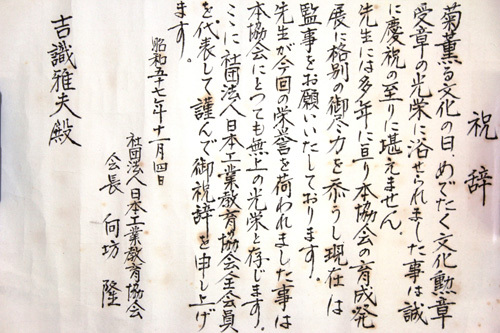 祝辞
菊薫る文化の日、めでたく文化勲章
受章の光栄に浴せられました事は誠
に慶祝の至りに堪えません。
先生には多年に亘り本協会の育成発
展に格別の御尽力を忝うし現在は
監事をお願いいたしております。
先生が今回の栄誉を荷われました事は
本協会にとっても無上の光栄と存じます。
ここに社団法人日本工業教育協会全会員
を代表して謹んで御祝辞を申し上げ
ます。
昭和五十七年十一月四日
社団法人日本工業教育協会
会長 向坊 隆
吉識雅夫殿